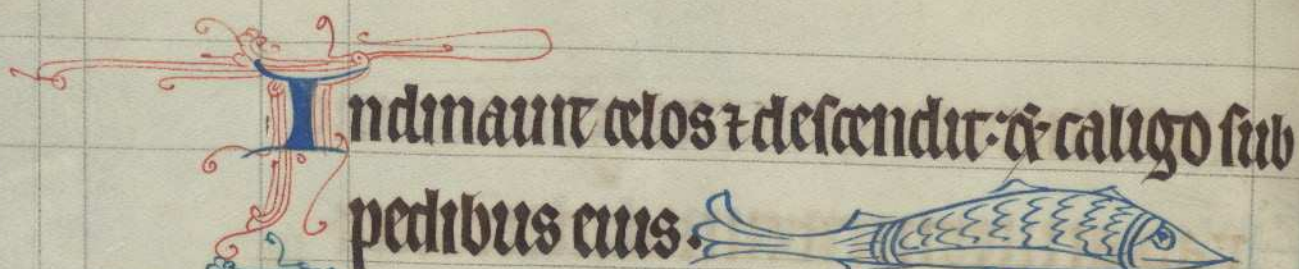 Inclinauit celos ⁊ descendit: & caligo sub
pedibus eius.